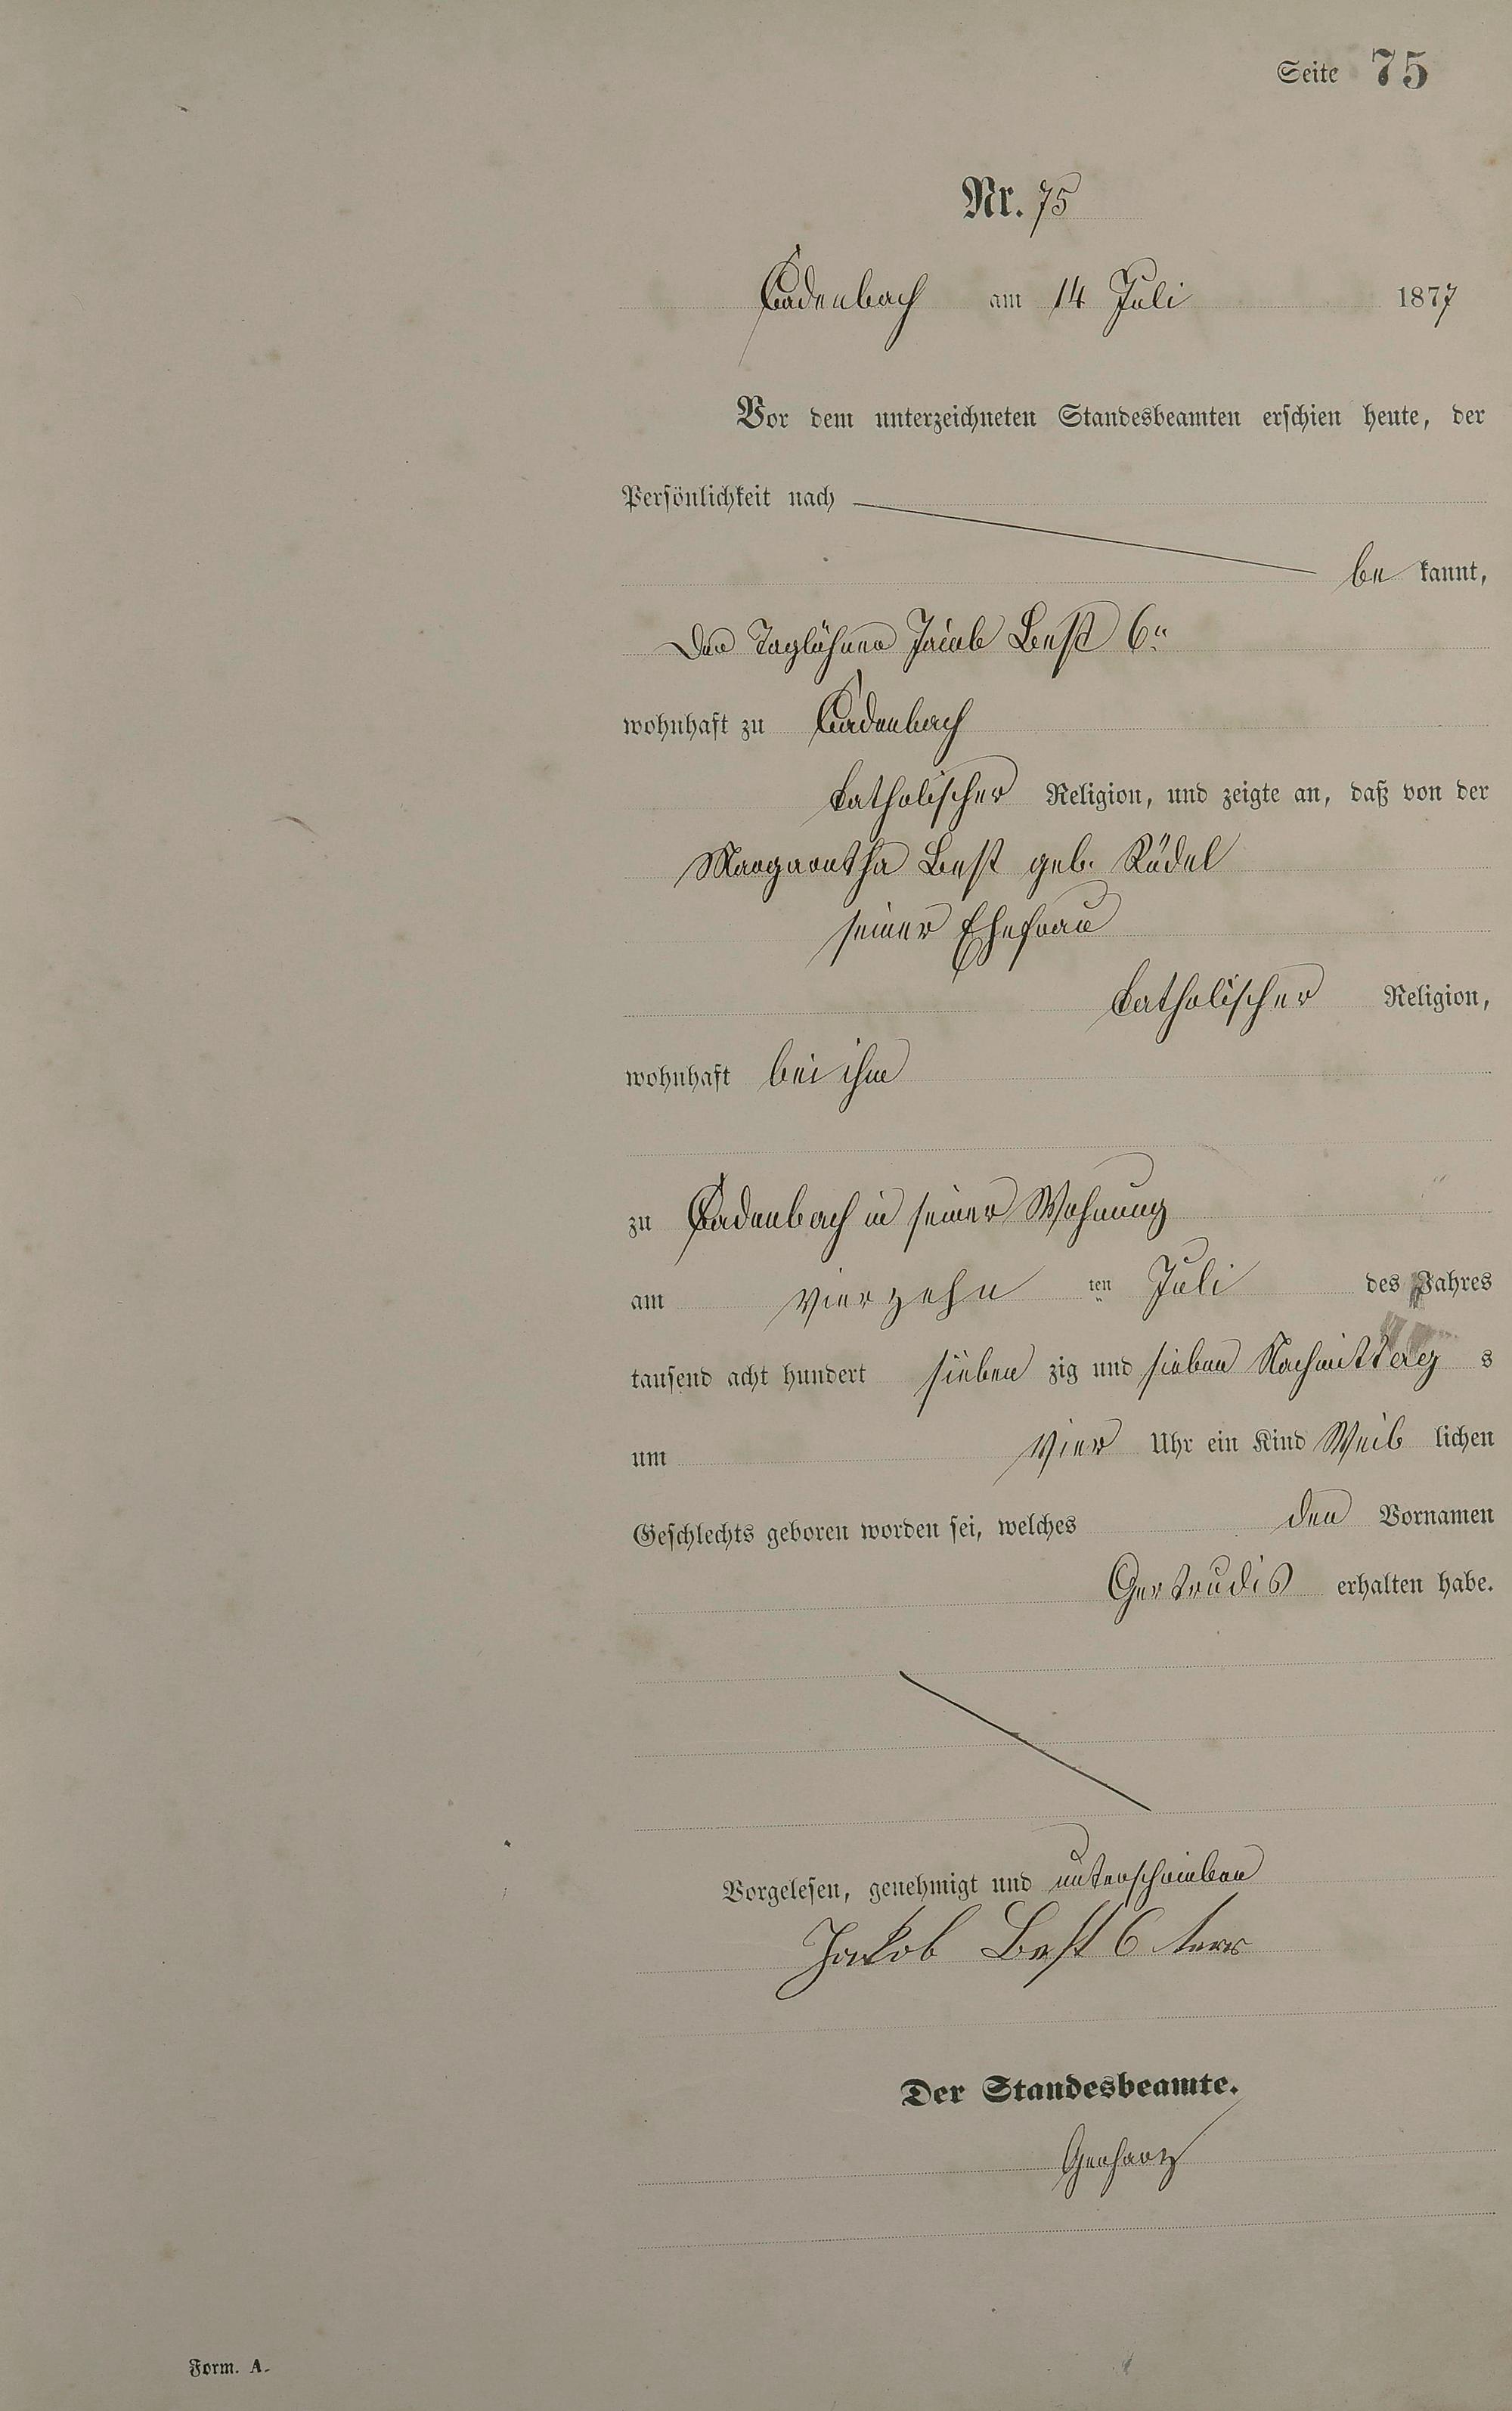 Seite 75
Nr. 75
Cadenbach am 14 Juli 1877
Vor dem unterzeichneten Standesbeamten erschien heute, der
Persönlichkeit nach
be kannt,
Der Taglöhner Jacob Best 6r
wohnhaft zu Cadenbach
katholischer Religion, und zeigte an, daß von der
Margaretha Best geb. Rödel
seiner Ehefrau
katholischer Religion,
wohnhaft bei ihm
zu Cadenbach in seiner Wohnung
am vierzehn ten Juli des Jahres
tausend acht hundert sieben zig und sieben Nachmittag s
um Vier Uhr ein Kind Weib lichen
Geschlechts geboren worden sei, welches den Vornamen
Gertrudis erhalten habe.
Vorgelesen, genehmigt und unterschrieben
Jakob Best 6 ters
Der Standesbeamte.
Gerharz
Form. A.